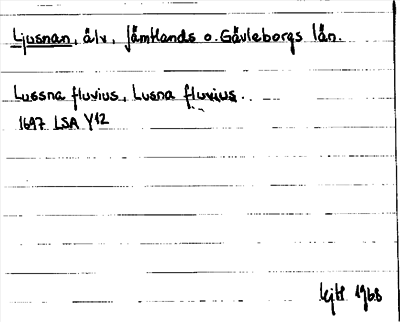 Ljusnan, älv, Jämtlands o. Gävleborgs län.
Lussna fluvius, Lusna fluvius.
1697 LSA Y12
1968